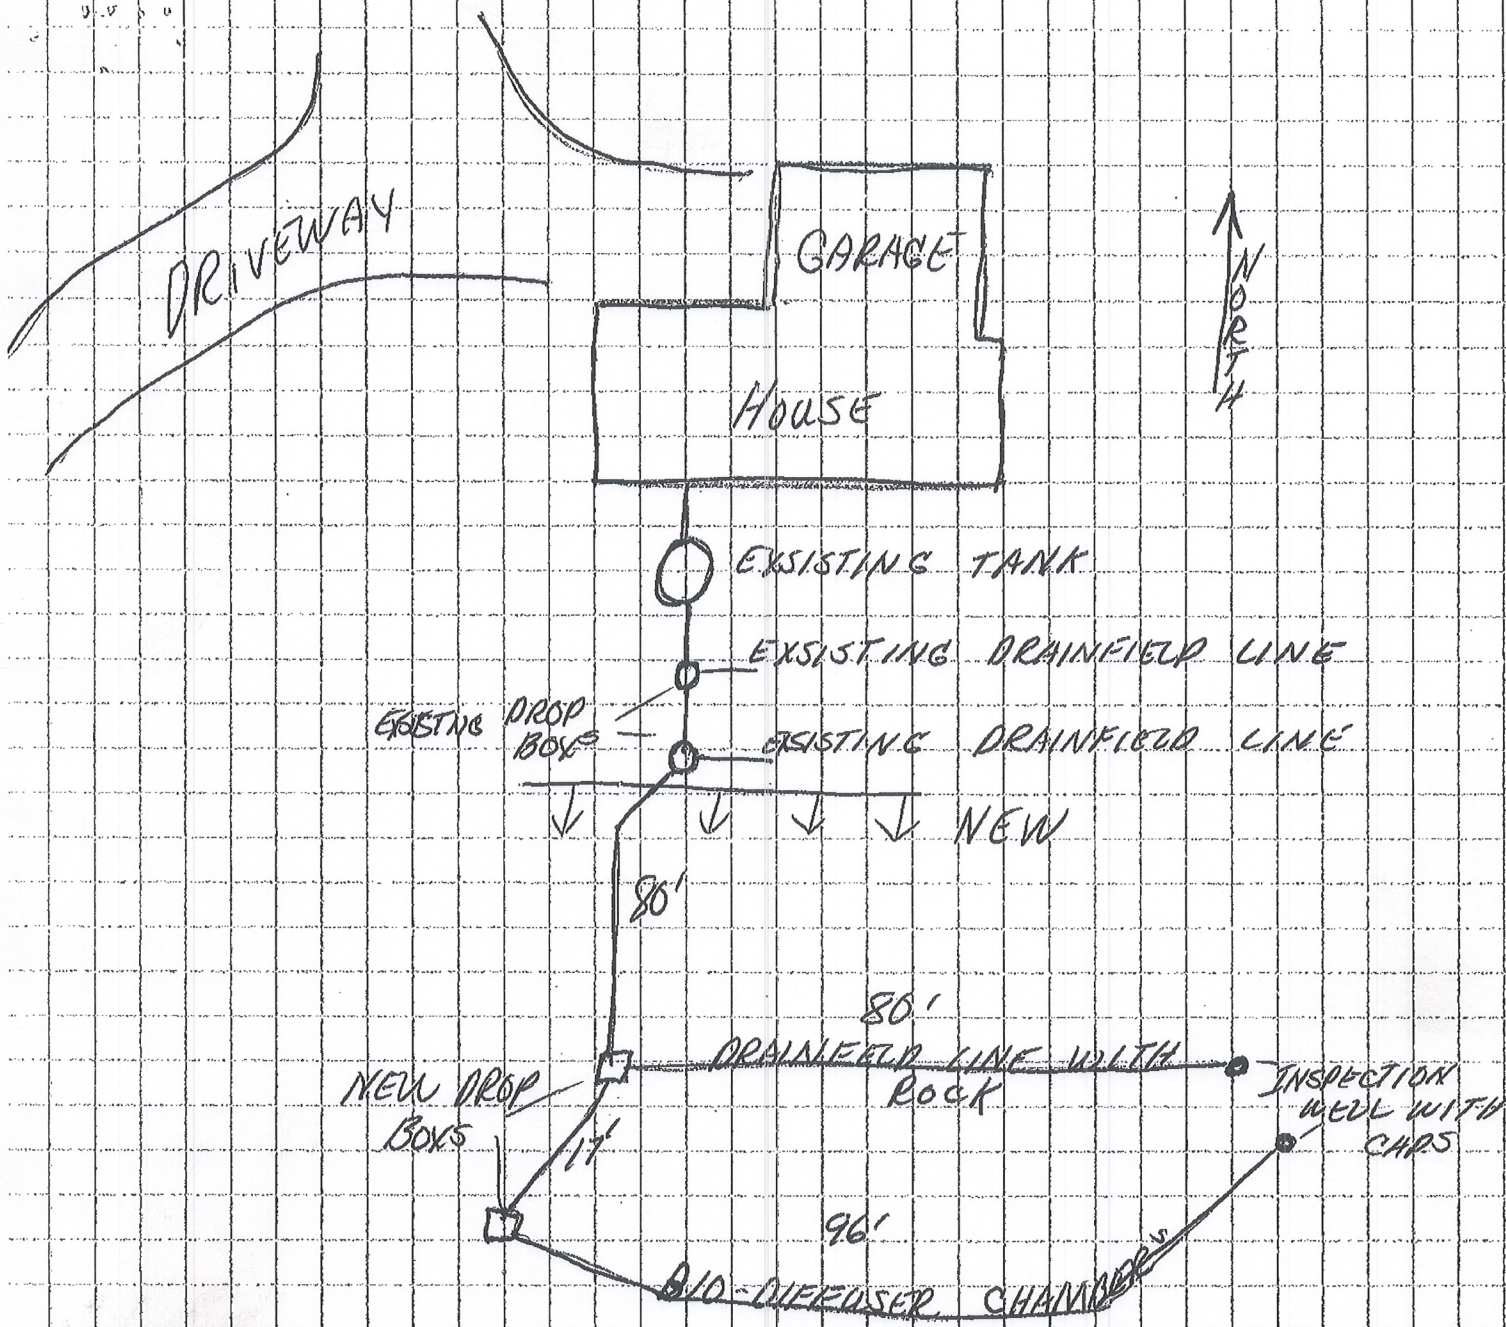 DRIVEWAY
GARAGE
NORTH
HOUSE
EXSISTING TANK
EXSISTING DRAINFIELD LINE
EXSISTNG DROP
BOXS
EXSISTING DRAINFIELD LINE
NEW
80'
80'
DRAINFEILD LINE WITH
ROCK
NEW DROP
BOXS
INSPECTION
WELL WITH
CAPS
17'
96'
BIO-DIFFUSER CHAMBERS